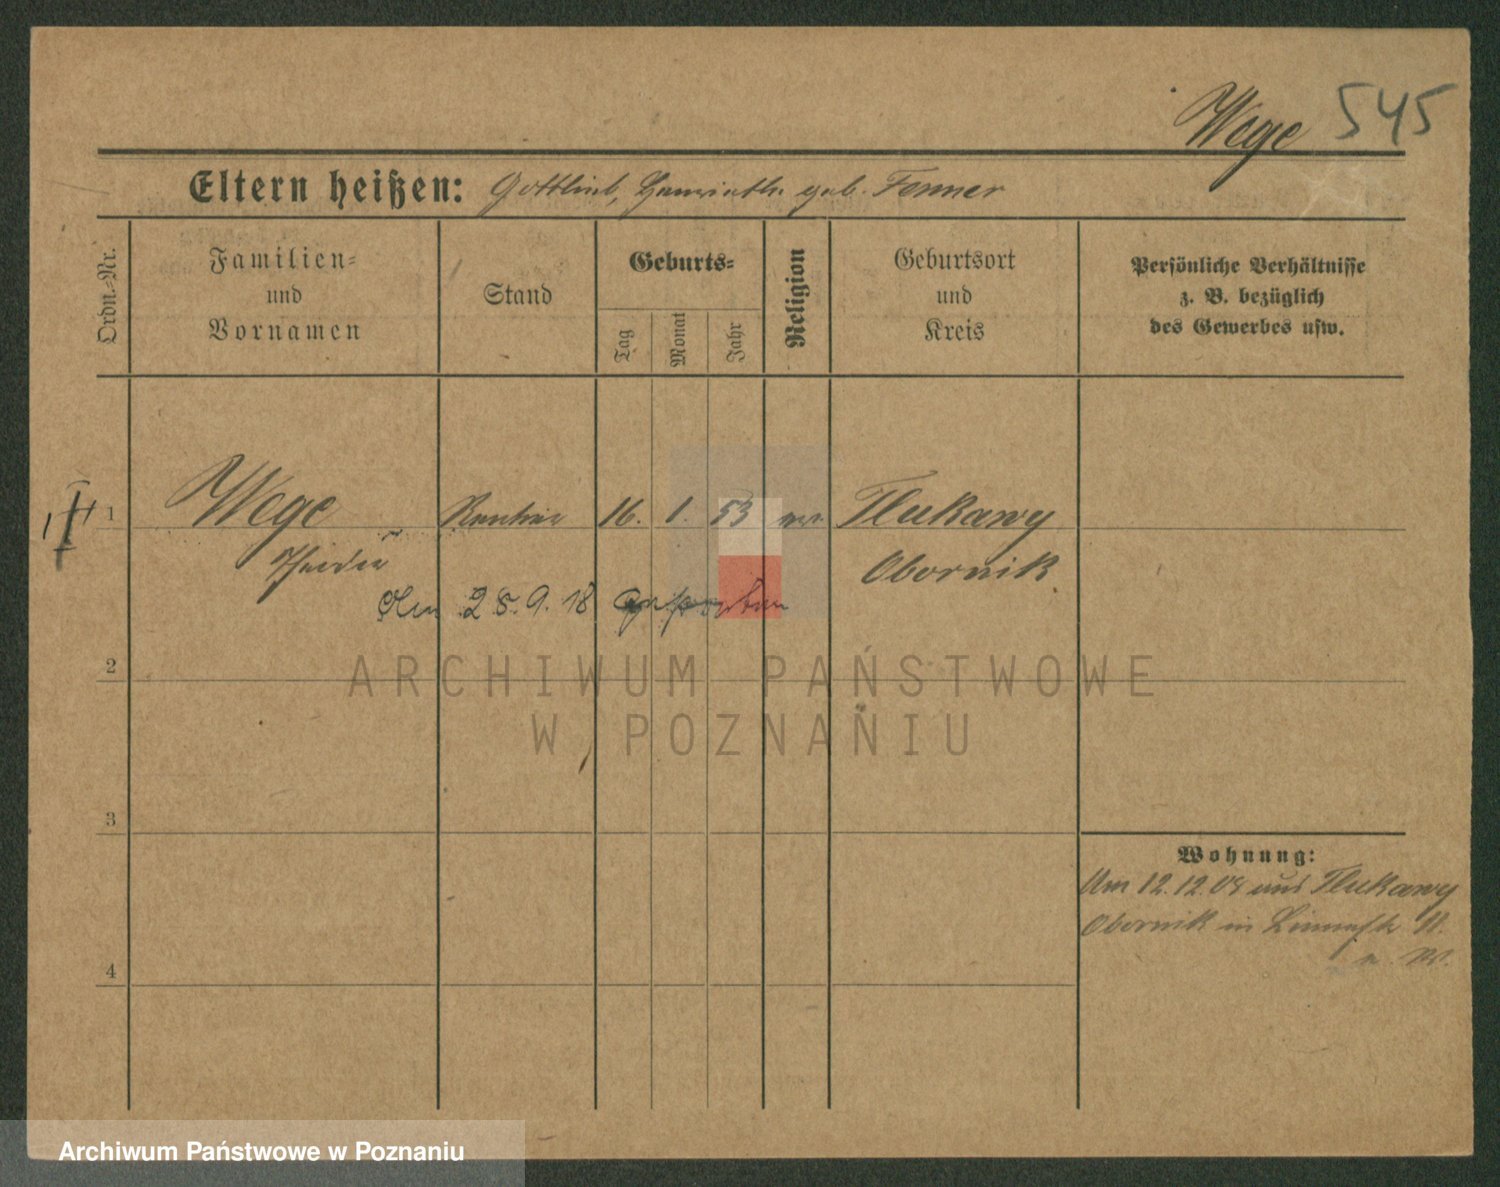 Wege 545
Eltern heißen: Gottlieb, Henriette geb. Fenner
Ordn.-Nr.
Familien-
und
Vornamen
Stand
Geburts-
Tag
Monat
Jahr
Religion
Geburtsort
und
Kreis
Persönliche Verhältnisse
z. B. bezüglich
des Gewerbes usw.
1 Wege Rentier 16. 1. 53 ev. Tlukawy
Obornik
Am 25.9.18 gestorben
2
ARCHIWUM PAŃSTWOWE
W POZNANIU
3
Wohnung:
Am 12.12.08 aus Tlukawy
Obornik in
4
Archiwum Państwowe w Poznaniu